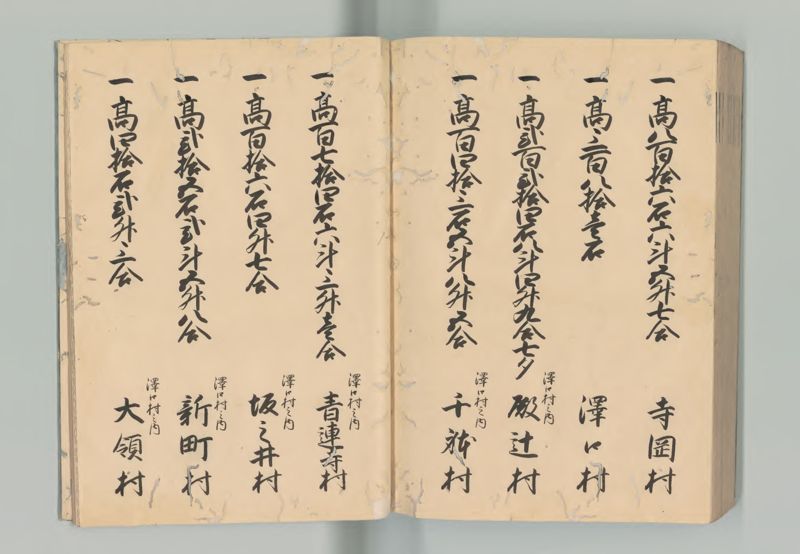 一高八百拾六石六斗五升七合 寺岡村
一高三百八拾壱石 澤口村
一高弐百弐拾四石八斗四升九合七夕 澤口村之内 殿辻村
一高百四拾三石五斗八升五合 澤口村之内 千躰村
一高百七拾四石六斗三升壱合 澤口村之内 青連寺村
一高百拾六石四升七合 澤口村之内 坂之井村
一高弐拾五石弐斗五升八合 澤口村之内 新町村
一高四拾石弐升三合 澤口村之内 大領村